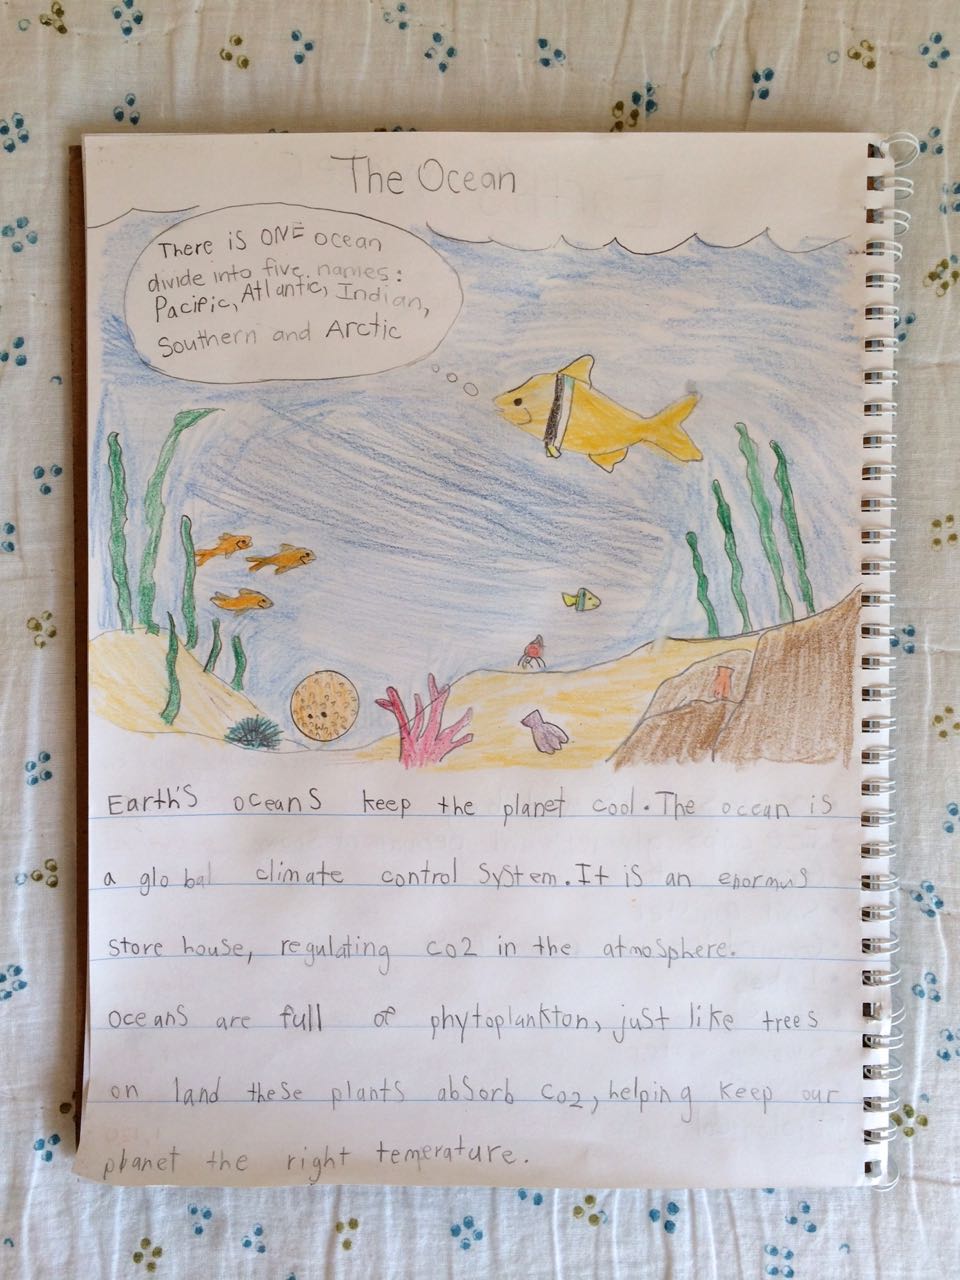 The Ocean
There is ONE ocean
divide into five names:
Pacific, Atlantic, Indian,
Southern and Arctic
Earth's oceans keep the planet cool. The ocean is
a global climate control system. It is an enormus
store house, regulating co2 in the atmosphere.
oceans are full of phytoplankton, just like trees
on land these plants absorb co2, helping keep our
planet the right temerature.